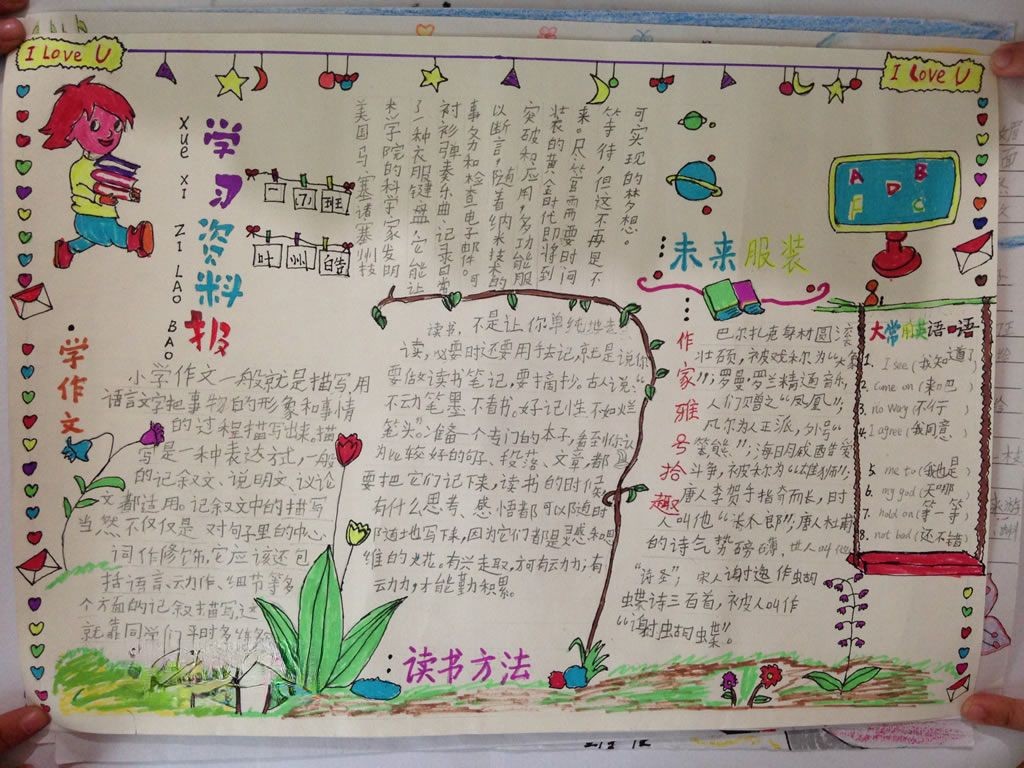 I Love U
I Love U
xue xi zi liao bao
学习资料报
一(7)班
叶州皓
可实现的梦想。
等待,但这不再是不
来。尽管需要时间
装的黄金时代即将到
突破和应用,多功能服
以断言,随着纳米技术的
事务和检查电子邮件。可
衬衫弹奏乐曲、记录日常
了一种衣服键盘,它能让
类学院的科学家发明
美国马塞诸塞州技
未来服装
A B
D
F C
学作文
小学作文一般就是描写,用
语言文字把事物的形象和事情
的过程描写出来。描
写是一种表达方式,一般
的记叙文、说明文、议论
文都适用。记叙文中的描写
当然不仅仅是对句子里的中心
词作修饰,它应该还包
括语言、动作、细节等多
个方面的记叙描写,这
就靠同学们平时多练
读书,不是让你单纯地去
读,必要时还要用手去记,就是说你
要做读书笔记,要摘抄。古人说:“
不动笔墨不看书。好记性不如烂
笔头”。准备一个专门的本子,看到你认
为比较好的句子、段落、文章,都
要把它们记下来,读书的时候
有什么思考、感悟都可以随时
随地写下来,因为它们都是灵感和思
维的火花。有兴走取,才何有云力力;有
云力力,才能勤积累。
读书方法
作家雅号拾趣
巴尔扎克身材圆滚
壮硕,被戏称为“大象
”;罗曼·罗兰精通音乐,
人们赠之“凤凰”;
凡尔为人正派,外号“
笨熊”;海明威酷爱
斗争,被称为“雄狮”;
唐人李贺手指奇而长,时
人叫他“长爪郎”;唐人杜甫
的诗气势磅礴,世人叫他
“诗圣”;宋人谢逸作蝴
蝶诗三百首,被人叫作
“谢蝴蝶”。
大常用英语口语
1. I see(我知道了)
2. come on(来吧)
3. no way(不行)
4. I agree(我同意)
5. me to(我也是)
6. my god(天哪)
7. hold on(等一等)
8. not bad(还不错)